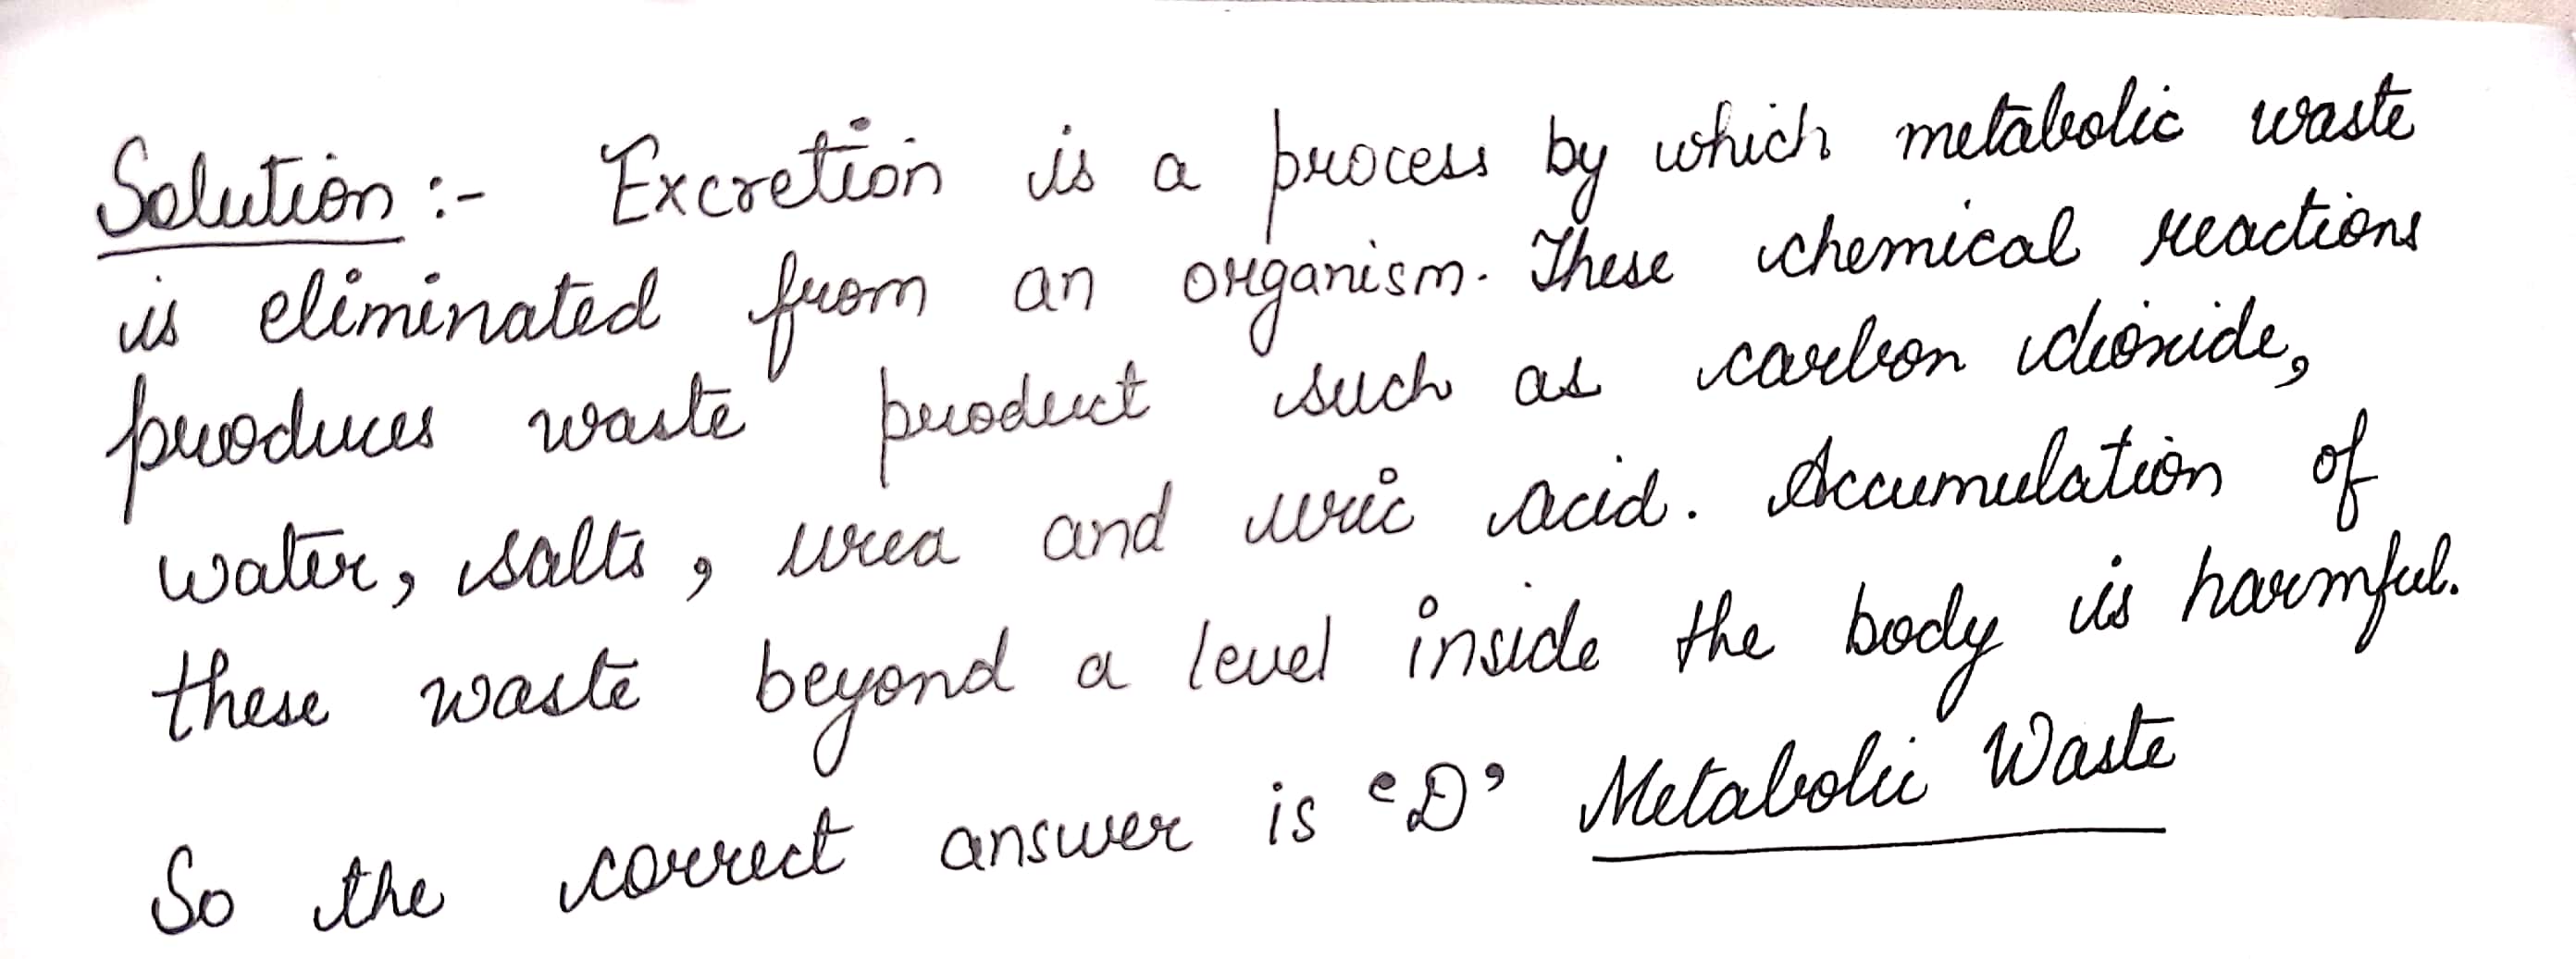 Solution :- Excretion is a process by which metabolic waste
is eliminated from an organism. These chemical reactions
produces waste product such as carbon dioxide,
water, salts, urea and uric acid. Accumulation of
these waste beyond a level inside the body is harmful.
So the correct answer is 'D' Metabolic Waste